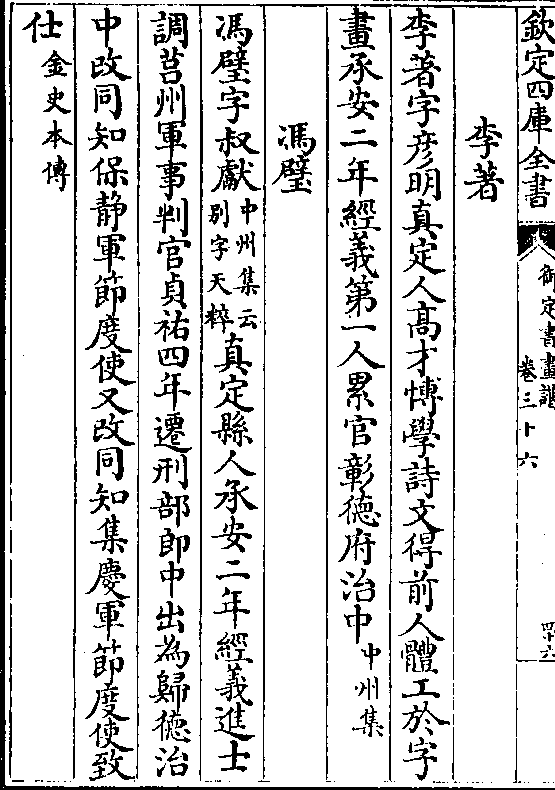 欽定四庫全書
御定書畫譜
卷三十六
四十六
李著
李著字彥明真定人髙才博學詩文得前人體工於字
畫承安二年經義第一人累官彰德府治中中州集
馮璧
馮璧字叔獻中州集云别字天粹真定縣人承安二年經義進士
調莒州軍事判官貞祐四年遷刑部郎中出為歸德治
中改同知保静軍節度使又改同知集慶軍節度使致
仕金史本傳